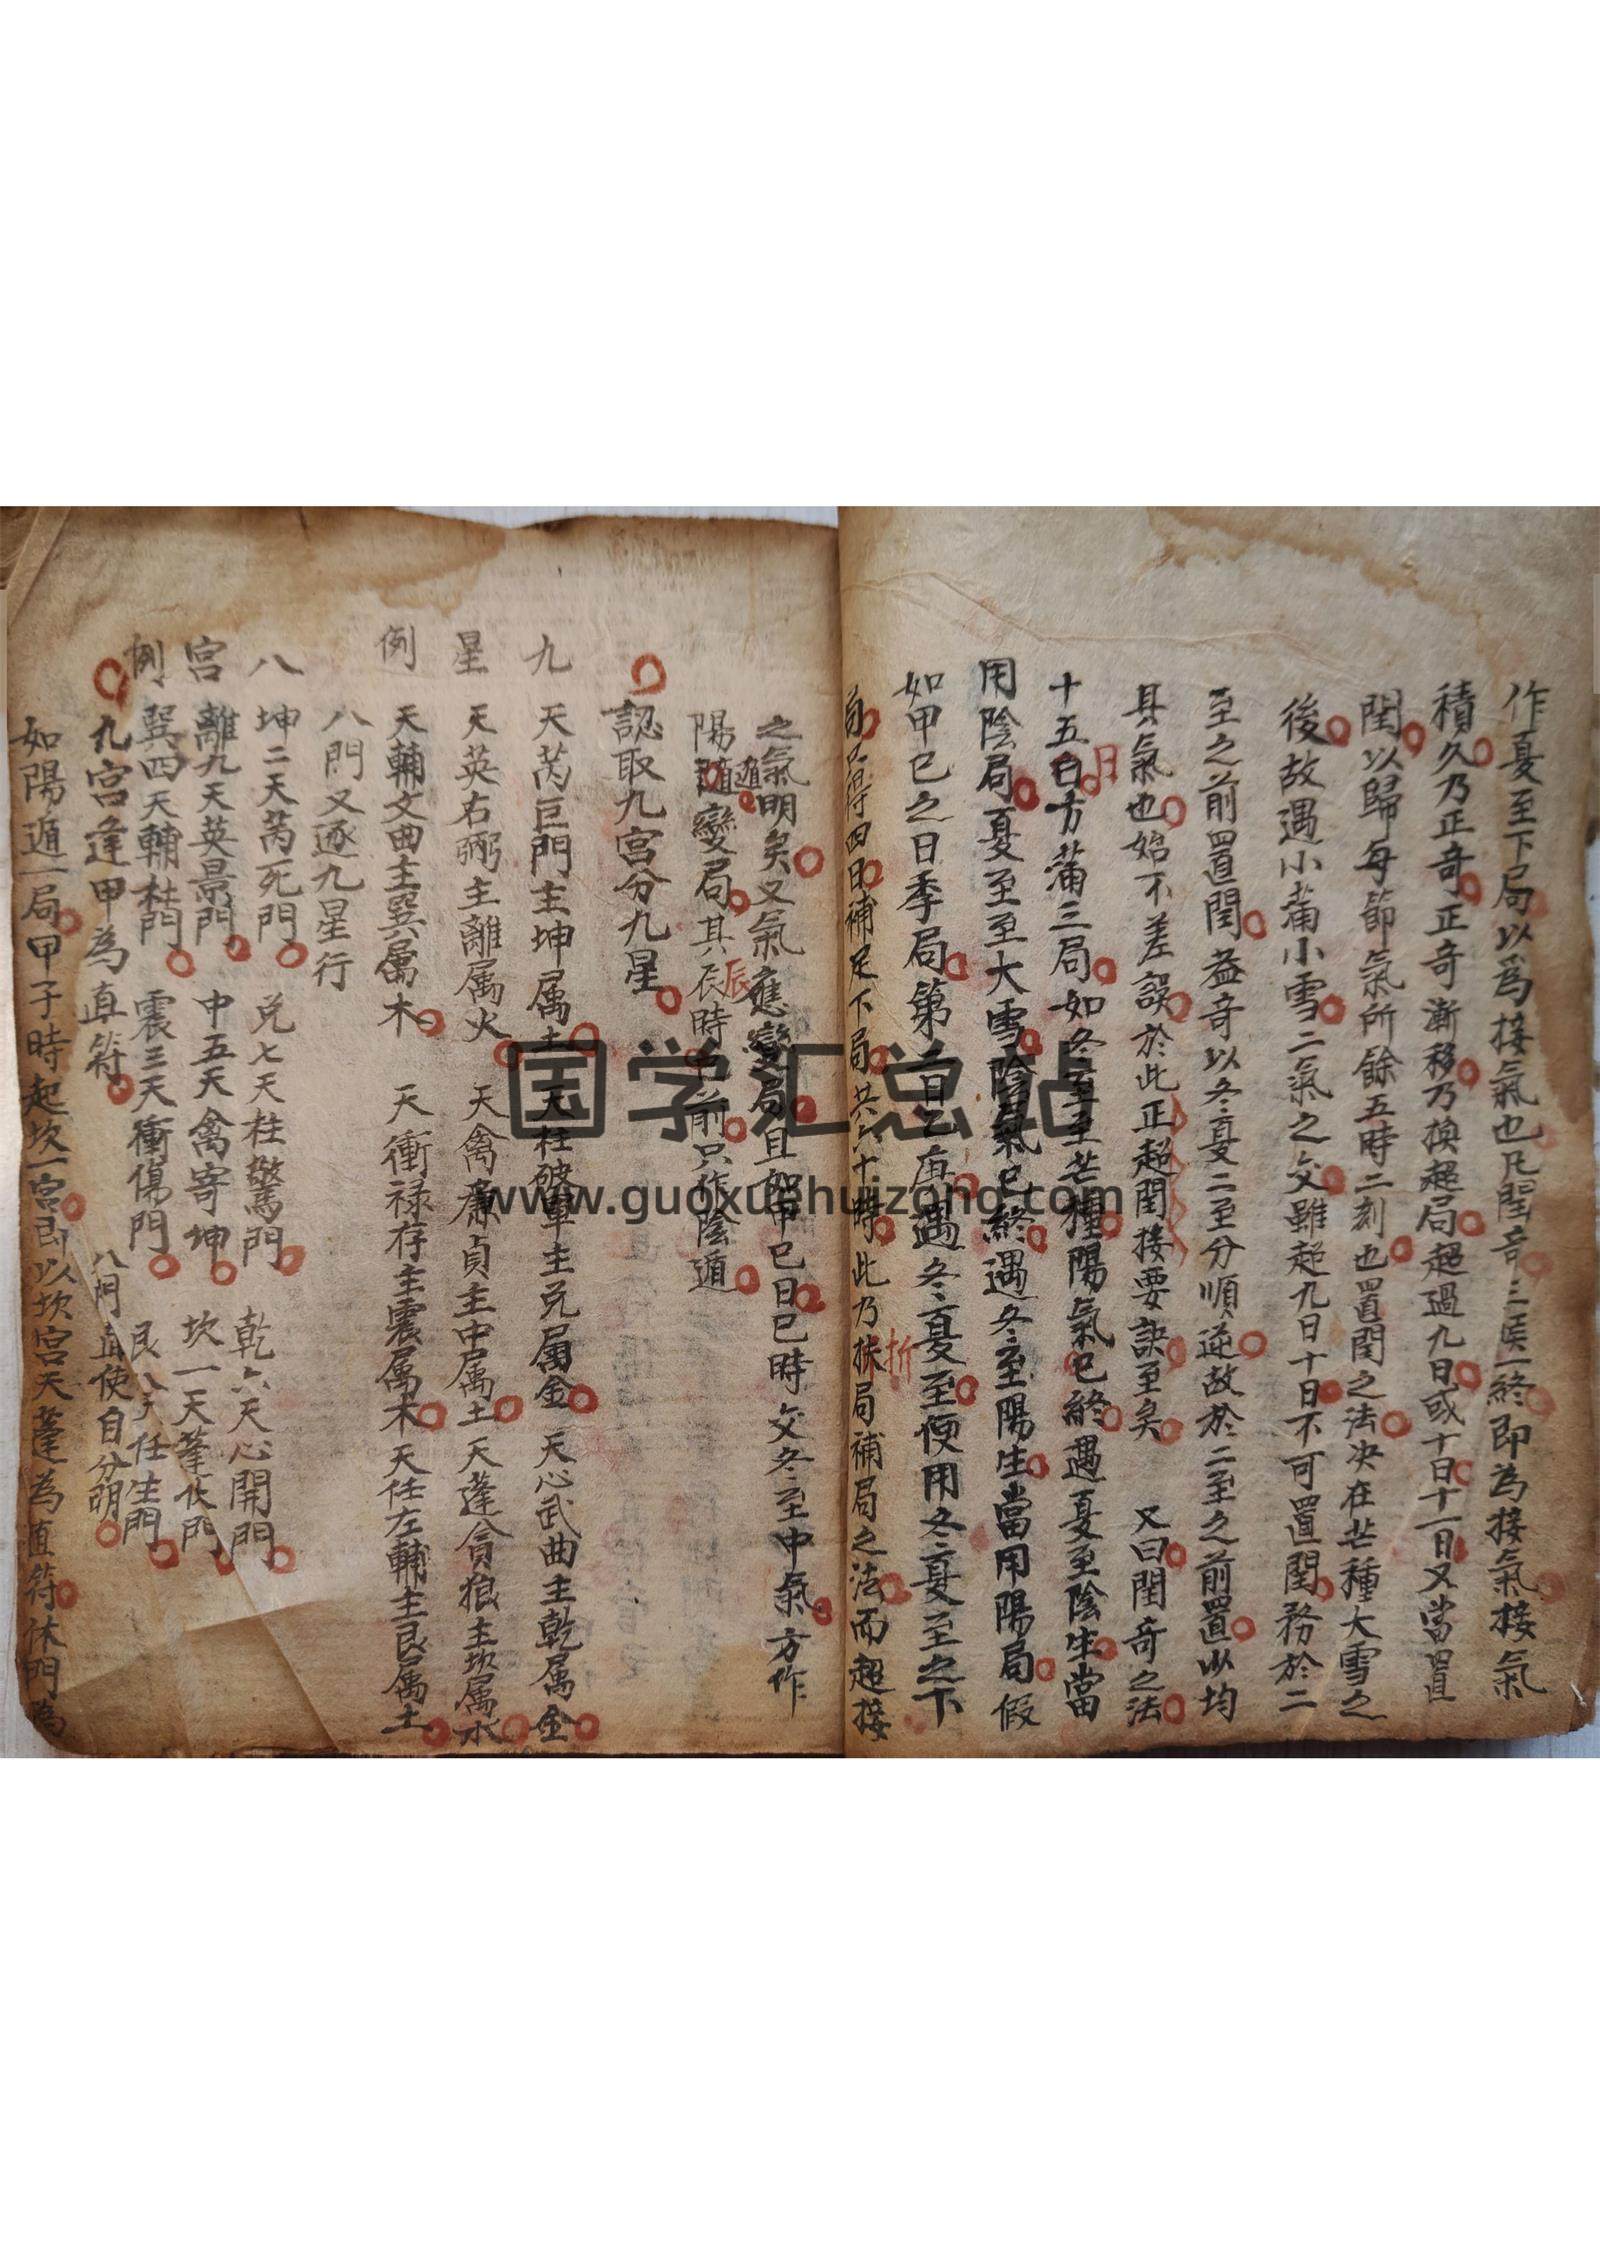 作夏至下局以為接氣也凡閏奇三候一終即為接氣接氣
積久乃正奇正奇漸移乃換超局超過九日或十日十一日又當置
閏以歸每節氣所餘五時二刻也置閏之法決在芒種大雪之
後故遇小蒲小雪二氣之交雖超九日十日不可置閏務於二
至之前置閏益奇以冬夏二至分順逆故於二至之前置以均
其氣也始不差誤於此正超閏接要訣至矣 又曰閏奇之法
十五白方蒲三局如冬至至芒種陽氣已終遇夏至陰生當
日
用陰局夏至至大雪陰氣已終遇冬至陽生當用陽局假
如甲已之日季局第二日乙庚遇冬夏至便用冬夏至之下
局只得四日補足下局共六十時此乃拆局補局之法而超接
折
之氣明矣又氣應變局且如甲巳日巳時交冬至中氣方作
陽遁變局其辰時已前只作陰遁
遁
辰
認取九宮分九星
九 天芮巨門主坤属土 天柱破軍主兌属金 天心武曲主乾属金
星 天英右弼主離属火 天禽廉貞主中属土 天蓬貪狼主坎属水
例 天輔文曲主巽属木 天衝禄存主震属木 天任左輔主艮属土
八門又逐九星行
八 坤二天芮死門 兌七天柱驚門 乾六天心開門
宮 離九天英景門 中五天禽寄坤 坎一天蓬休門
例 巽四天輔杜門 震三天衝傷門 艮八天任生門
九宮逢甲為直符 八門直使自分明
如陽遁一局甲子時起坎一宮即以坎宮天蓬為直符休門為
国学汇总站
www.guoxuehuizong.com